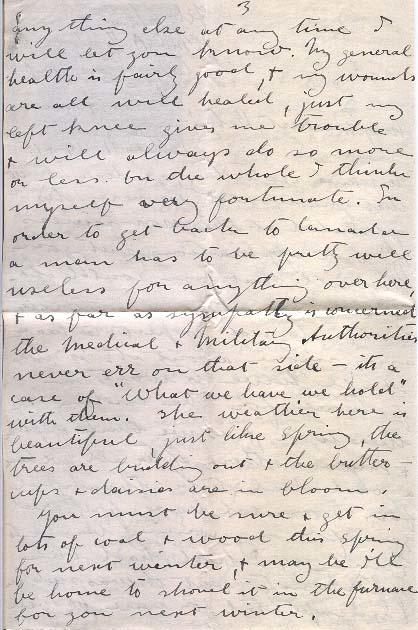 3
any thing else at any time I
will let you know. My general
health is fairly good, & my wounds
are all well healed, just my
left knee gives me trouble
& will always do so more
or less. On the whole I think
myself very fortunate. In
order to get back to Canada
a man has to be pretty well
useless for anything over here
& as far as sympathy is concerned
the Medical & Military Authorities
never err on that side – its a
case of "What we have we hold"
with them. The weather here is
beautiful just like spring, the
trees are budding out & the butter-
cups & daisies are in bloom.
You must be sure & get in
lots of coal & wood this spring
for next winter, & may be I'll
be home to shovel it in the furnace
for you next winter.